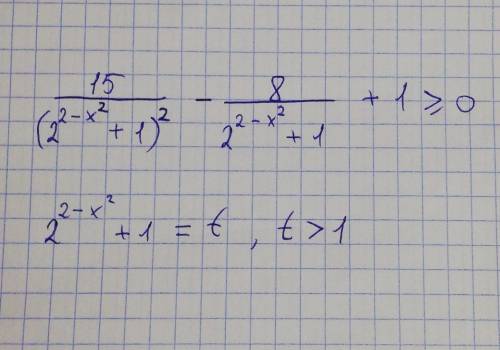 15/(2^(2-x^2) + 1)^2 - 8/(2^(2-x^2) + 1) + 1 ≥ 0
2^(2-x^2) + 1 = t, t > 1